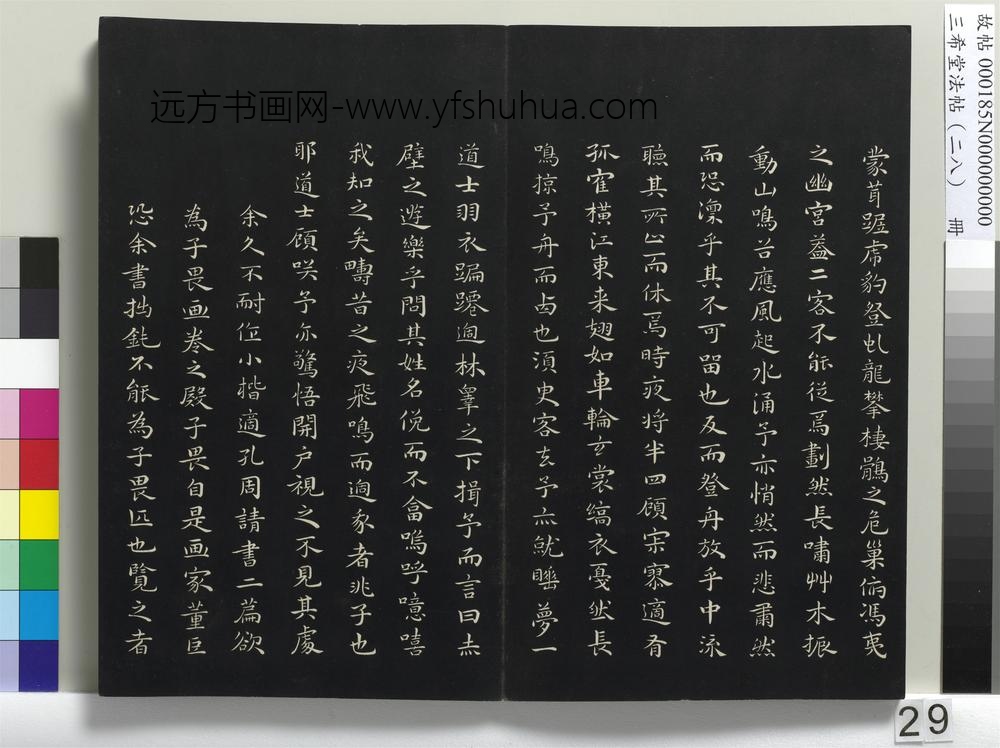 蒙茸踞虎豹登虬龍攀棲鶻之危巢俯馮夷
之幽宮蓋二客不能從焉劃然長嘯艸木振
動山鳴谷應風起水涌予亦悄然而悲肅然
而恐凜乎其不可留也反而登舟放乎中流
聽其所止而休焉時夜將半四顧宋寥適有
孤寉橫江東来翅如車輪玄裳縞衣戛然長
鳴掠予舟而西也須臾客去予亦就睡夢一
道士羽衣蹁躚過林皋之下揖予而言曰赤
壁之遊樂乎問其姓名俛而不畣嗚呼噫嘻
我知之矣疇昔之夜飛鳴而過我者非子也
耶道士顧咲予亦驚悟開戶視之不見其處
余久不耐作小楷適孔周請書二篇欲
為子畏画卷之殿子畏自是画家董巨
恐余書拙鈍不能為子畏匹也覽之者
远方书画网-www.yfshuhua.com
故帖 000185N000000000
三希堂法帖（二八） 冊
29